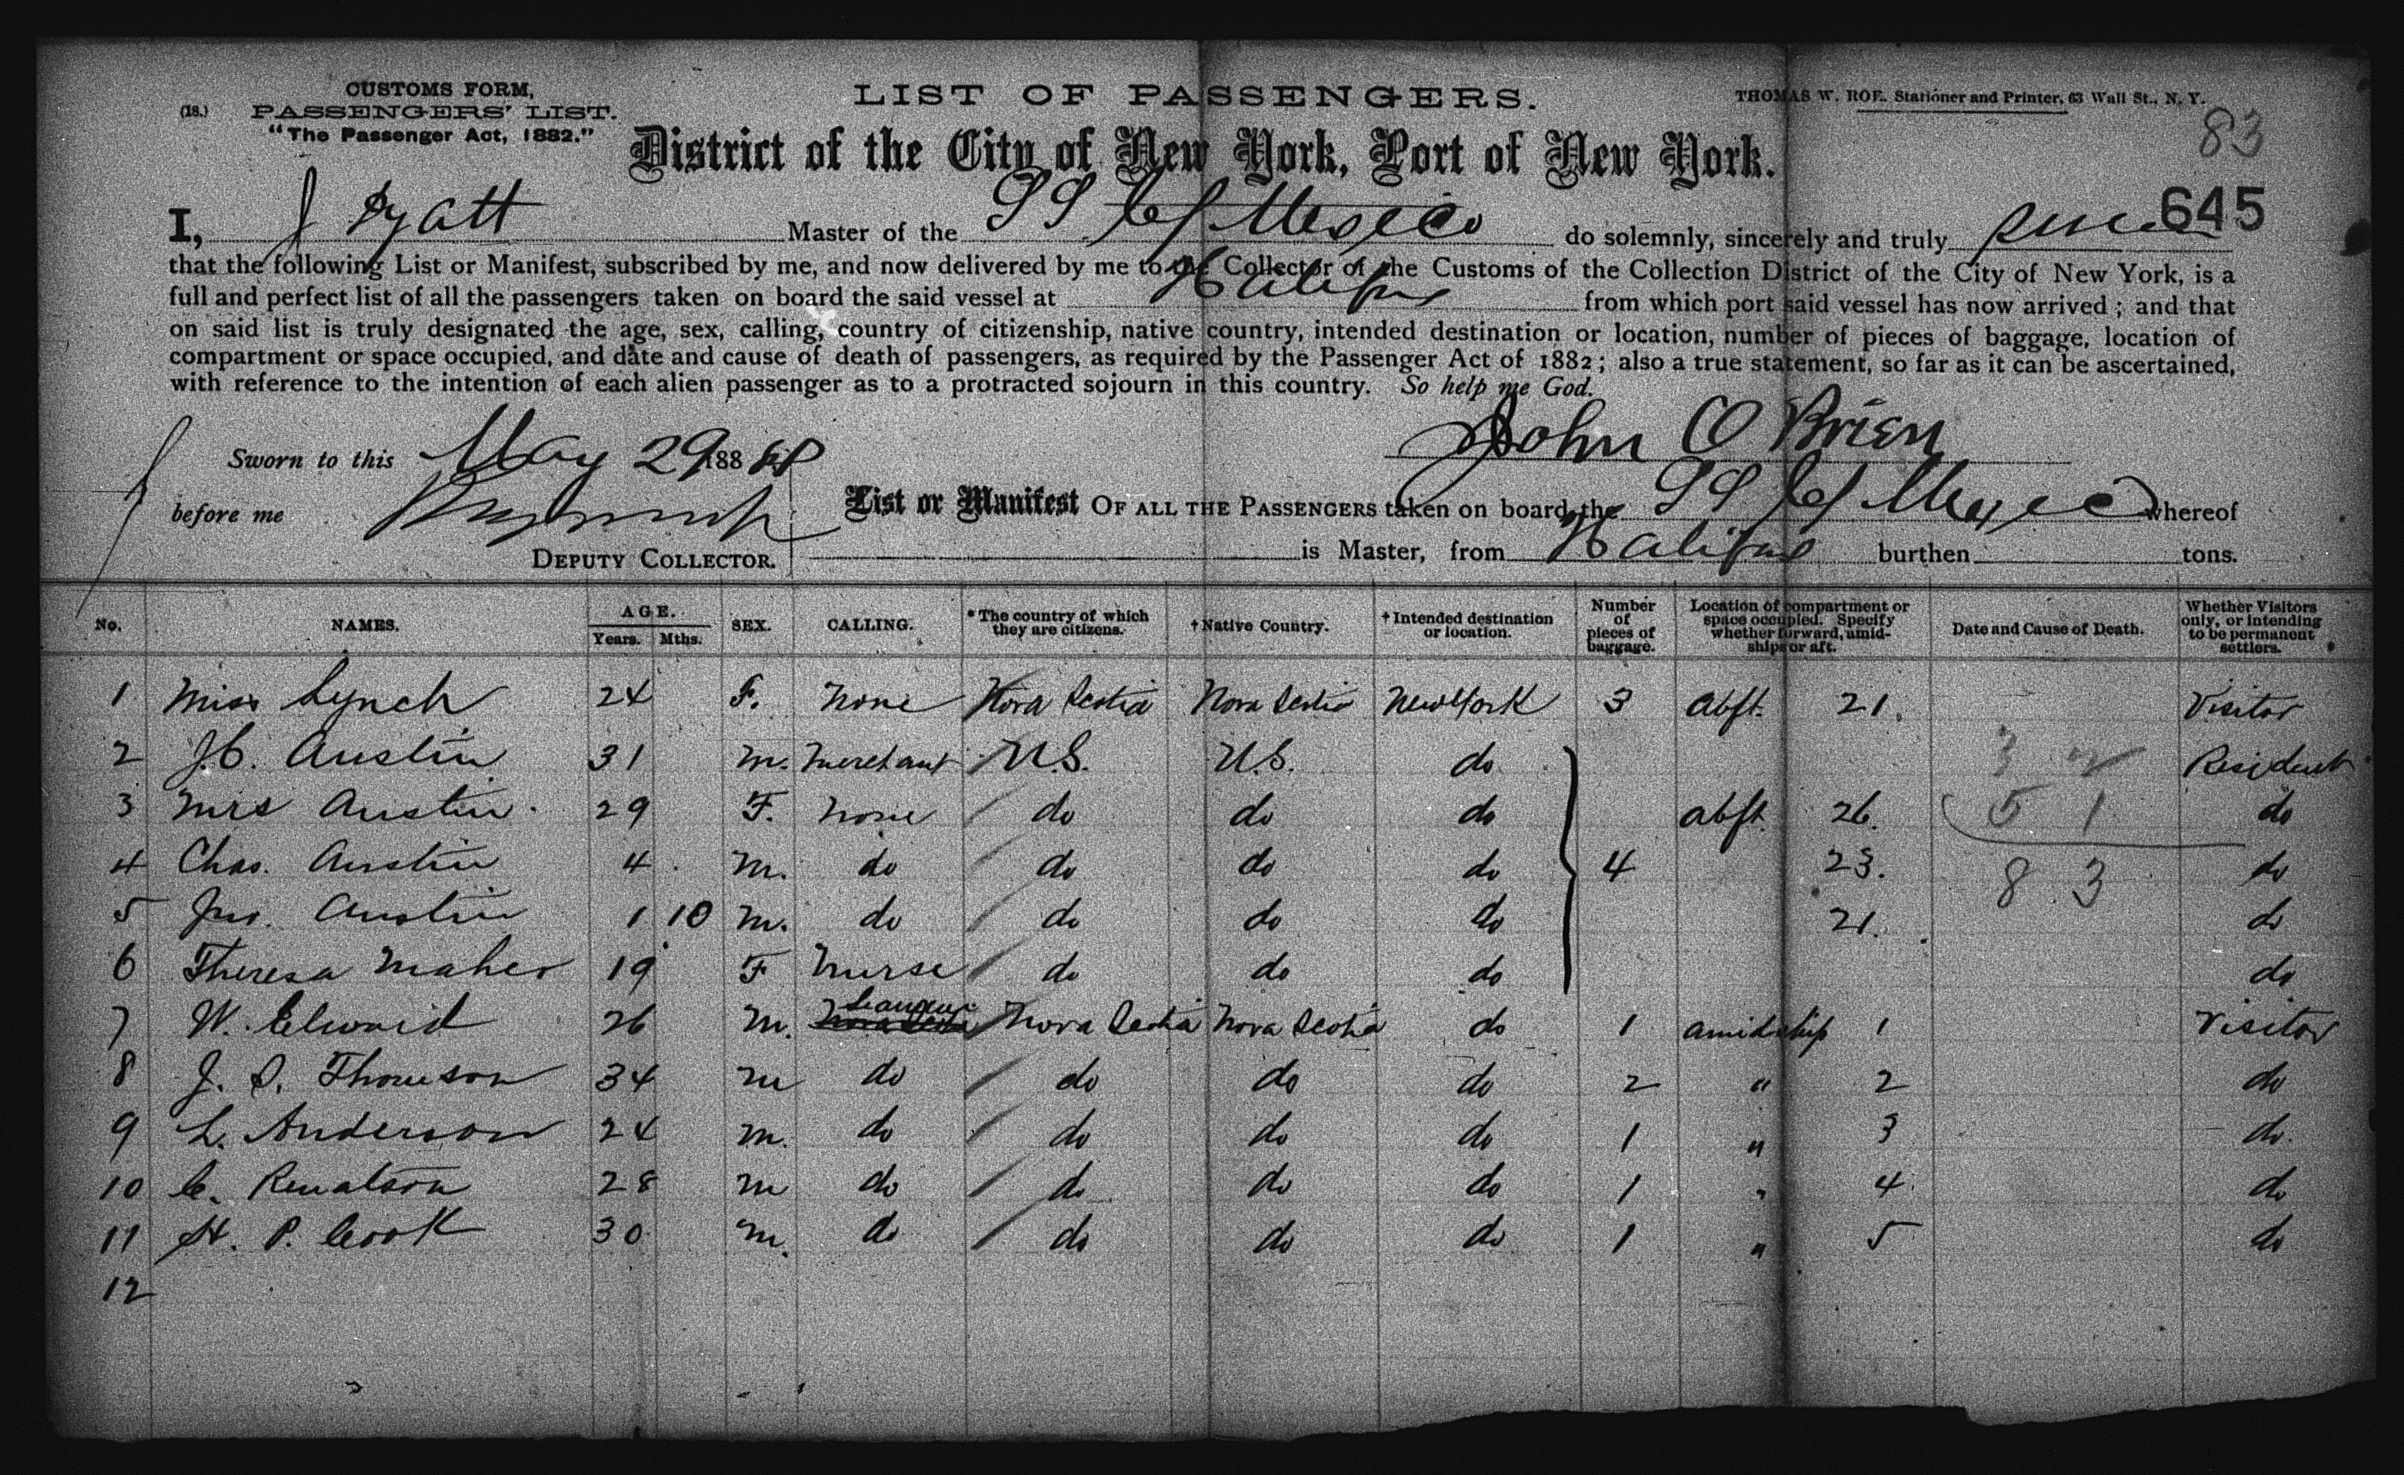 CUSTOMS FORM,
(18.) PASSENGERS' LIST.
"The Passenger Act, 1882."
LIST OF PASSENGERS.
THOMAS W. ROE. Stationer and Printer, 63 Wall St., N. Y.
83
District of the City of New York, Port of New York.
645
I, J Pyatt Master of the SS C of Mexico do solemnly, sincerely and truly
that the following List or Manifest, subscribed by me, and now delivered by me to the Collector of the Customs of the Collection District of the City of New York, is a
full and perfect list of all the passengers taken on board the said vessel at Halifax from which port said vessel has now arrived; and that
on said list is truly designated the age, sex, calling, country of citizenship, native country, intended destination or location, number of pieces of baggage, location of
compartment or space occupied, and date and cause of death of passengers, as required by the Passenger Act of 1882; also a true statement, so far as it can be ascertained,
with reference to the intention of each alien passenger as to a protracted sojourn in this country. So help me God.
John O Brien
Sworn to this May 29 188
before me
DEPUTY COLLECTOR.
List or Manifest OF ALL THE PASSENGERS taken on board the SS C of Mexico whereof
is Master, from Halifax burthen tons.
No. NAMES. AGE. Years. Mths. SEX. CALLING. *The country of which they are citizens. †Native Country. †Intended destination or location. Number of pieces of baggage. Location of compartment or space occupied. Specify whether forward, amidships or aft. Date and Cause of Death. Whether Visitors only, or intending to be permanent settlers.
1 Miss Lynch 24 F. None Nova Scotia Nova Scotia New York 3 abft. 21. Visitor
2 J.C. Austin 31 M. Merchant U.S. U.S. do 3 2 Resident
3 Mrs Austin 29 F. None do do do abft 26. 5 1 do
4 Chas. Austin 4 M. do do do do 4 23. 8 3 do
5 Jno. Austin 1 10 M. do do do do 21. do
6 Theresa Maher 19 F Nurse do do do do
7 W. 26 M. Nova Scotia Nova Scotia do 1 amidship 1 Visitor
8 J. S. Thomson 34 M do do do do 2 " 2 do
9 L. Anderson 24 M. do do do do 1 " 3 do.
10 C. 28 M do do do do 1 " 4 do
11 H. P. Cook 30 M. do do do do 1 " 5 do
12